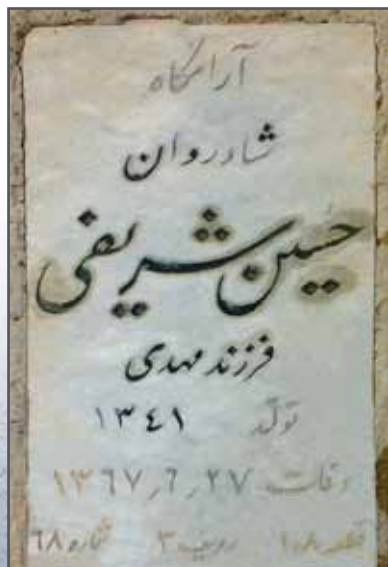 آرامگاه
شادروان
حسین شریفی
فرزند مهدی
تولد ۱۳۴۱
وفات ۱۳۶۷٫۶٫۲۷
قطعه ۱۰۸ ردیف ۳ شماره ۶۸